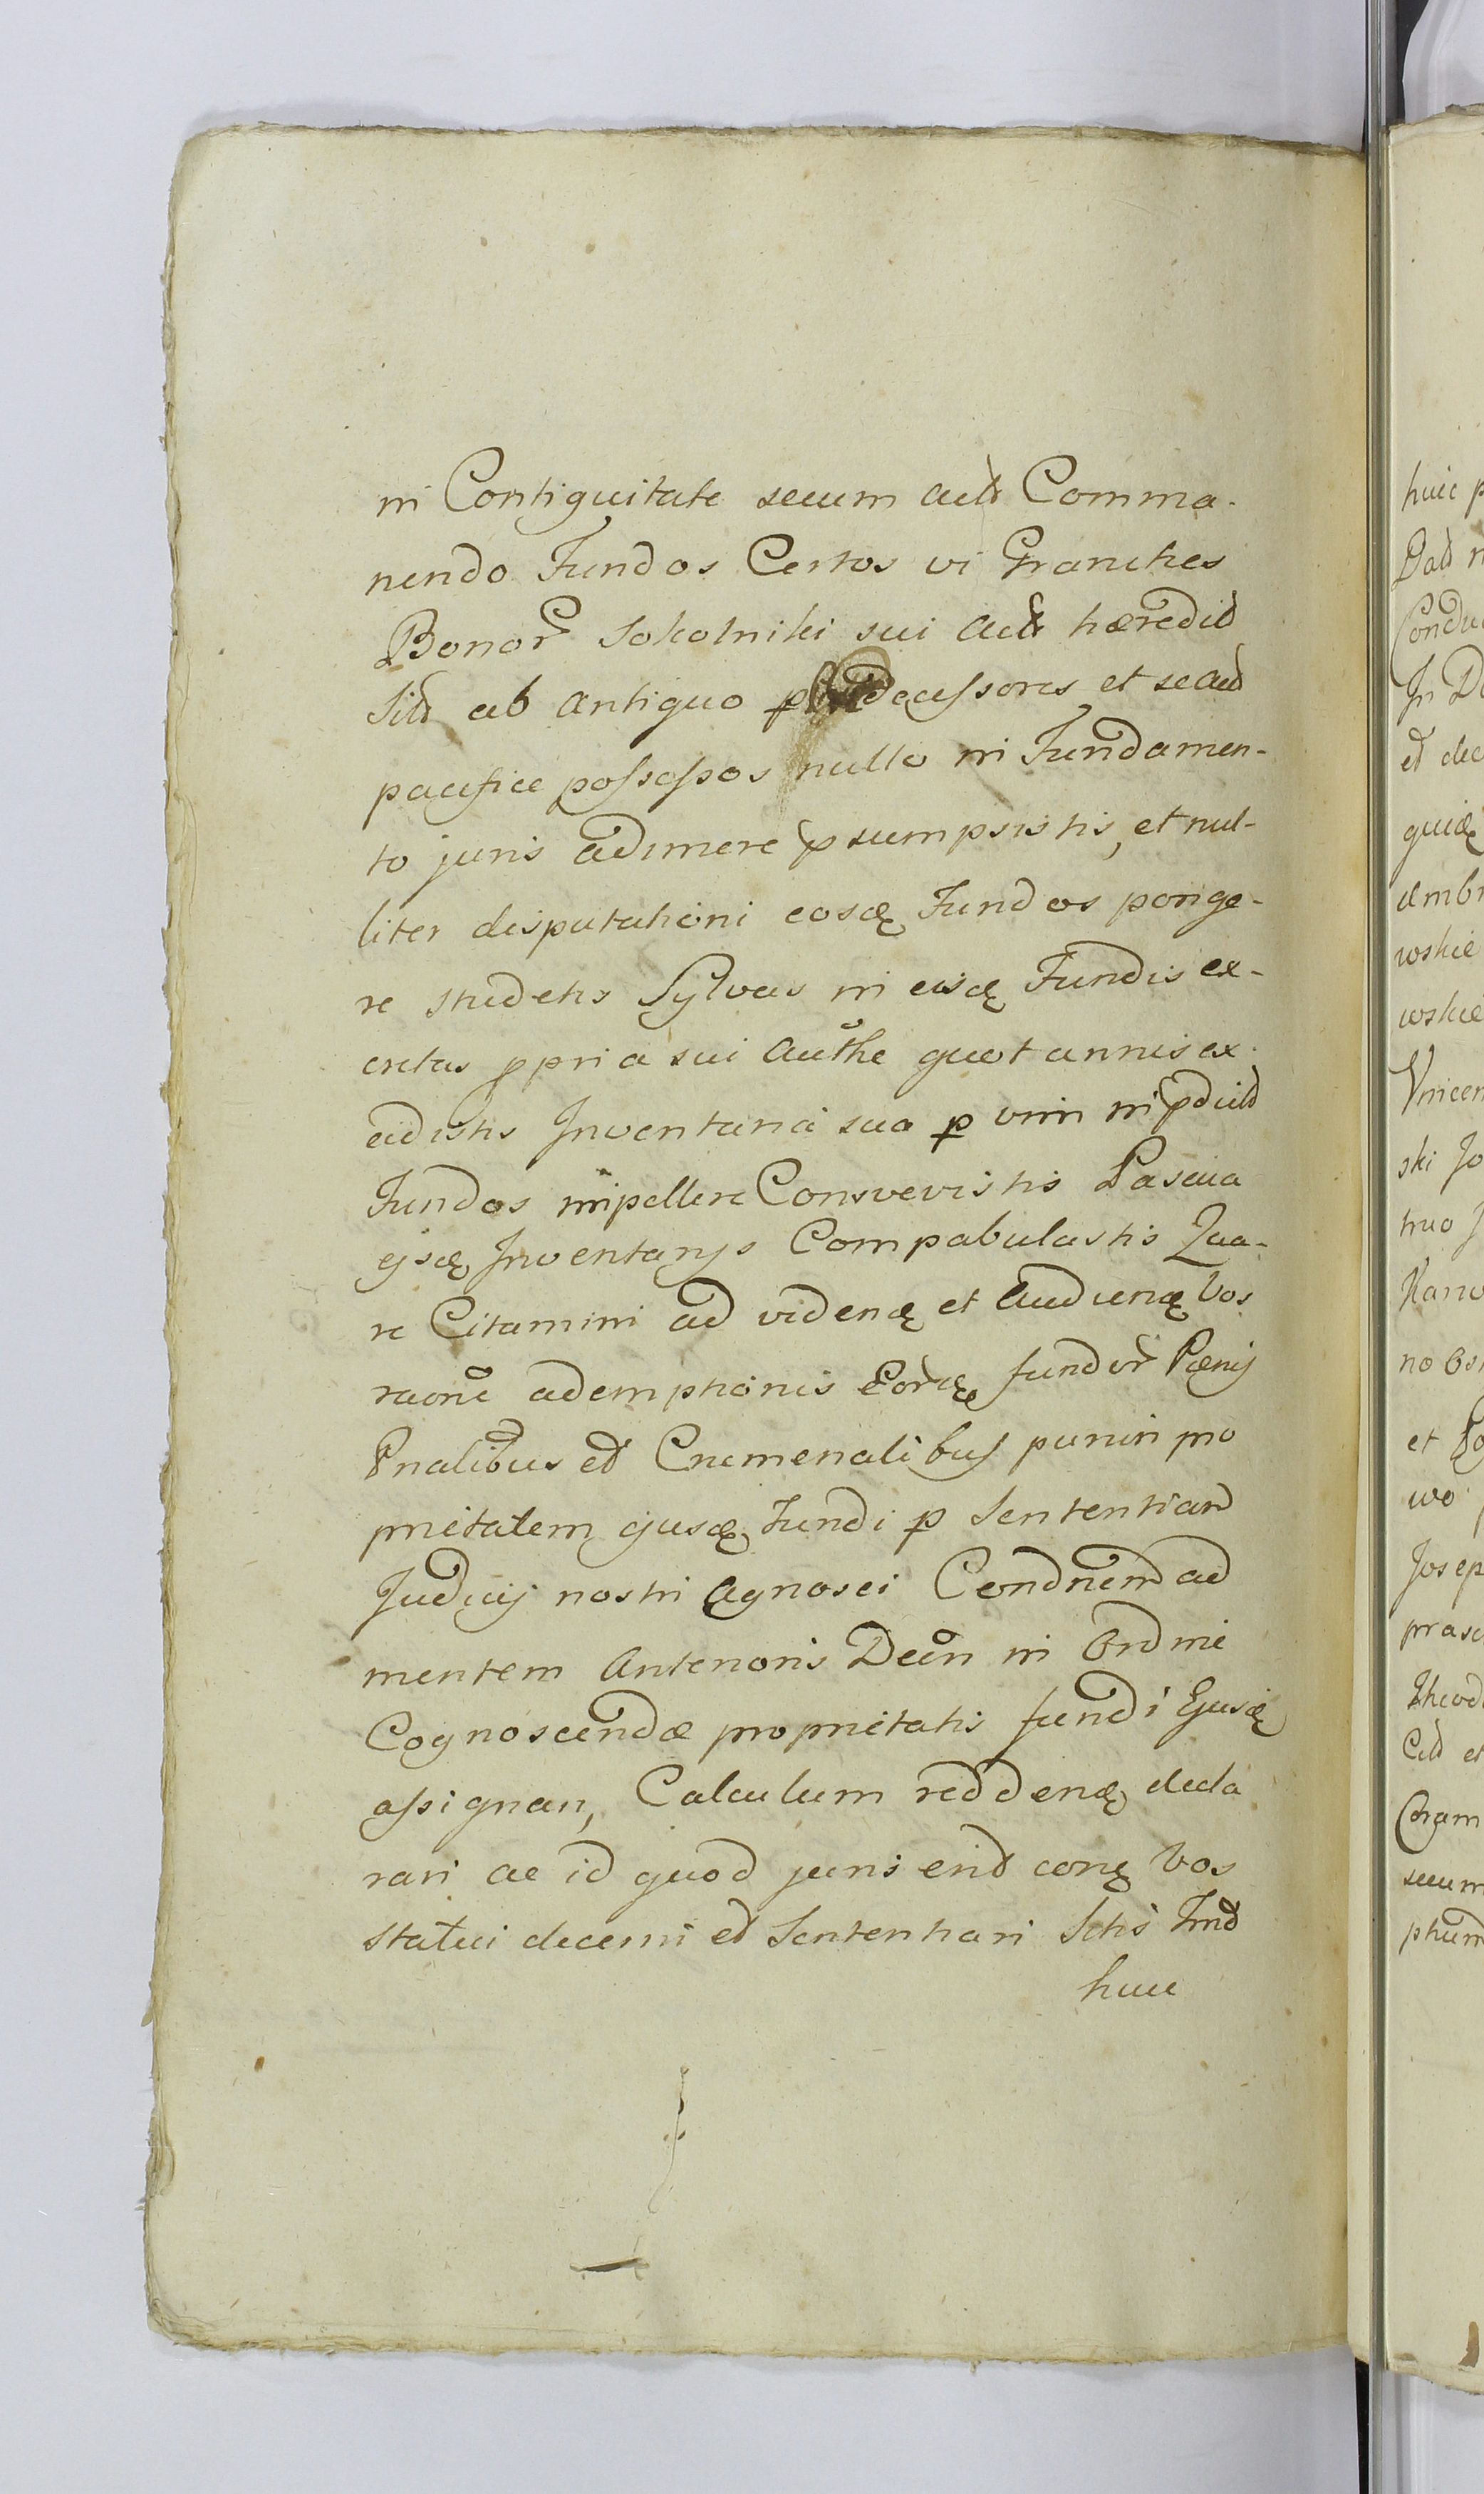 in Contiguitate secum actã Comma-
nendo Fundos Certos vi Granities
Bonor̃ Sokolniki sui Actr hæredid
Sitd ab antiquo prædecessores et se acd
pacifice possessos nullo in Fundamen-
to juris adimere p̃sumpsistis, et nul-
liter disputationi eosdę Fundos porige-
re studetis Sylvas in eisdę Fundis ex-
cretas ppria sui Auth̃e quot annis ex-
cidistis Inventaria sua p vim in p̃dictd
Fundos impellere Consvevistis Pascua
ejsdę Inventarÿs Compabulastis Qua-
re Citamini ad videnę et Audienę Vos
raõne ademptionis Eordę fundor̃ Pænis
Pñalibus etd Criminalibus puniri pro
prietatem ejusdę Fundi p Sententiam
Judicÿ nostri Agnosci Condnẽm ad
mentem Anterioris Decñ in Ordine
Cognoscendæ proprietatis fundi Ejusdę
assignari, Calculum reddenę decla
rari ac id quod juris eritd conę Vos
statui decerni etd Sententiari Sctis Tmd
huic
huic p
Datd n
Condu
In D
etd dec
quidę
embr
wskie
wskie
Vincen
ski Jo
truo J
Karw
no Os
et
wo
Josep
prasc
Theod
Citd et
Coram
secum
ptum